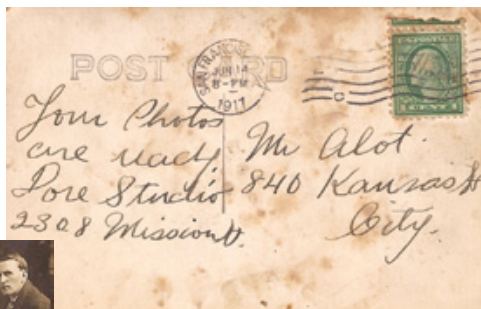 POST CARD
SAN FRANCISCO
JUN 14
8-PM
1917
Your Photos
are ready.
Dore Studio
2308 Mission St.
Mr Alot.
840 Kansas St
City.